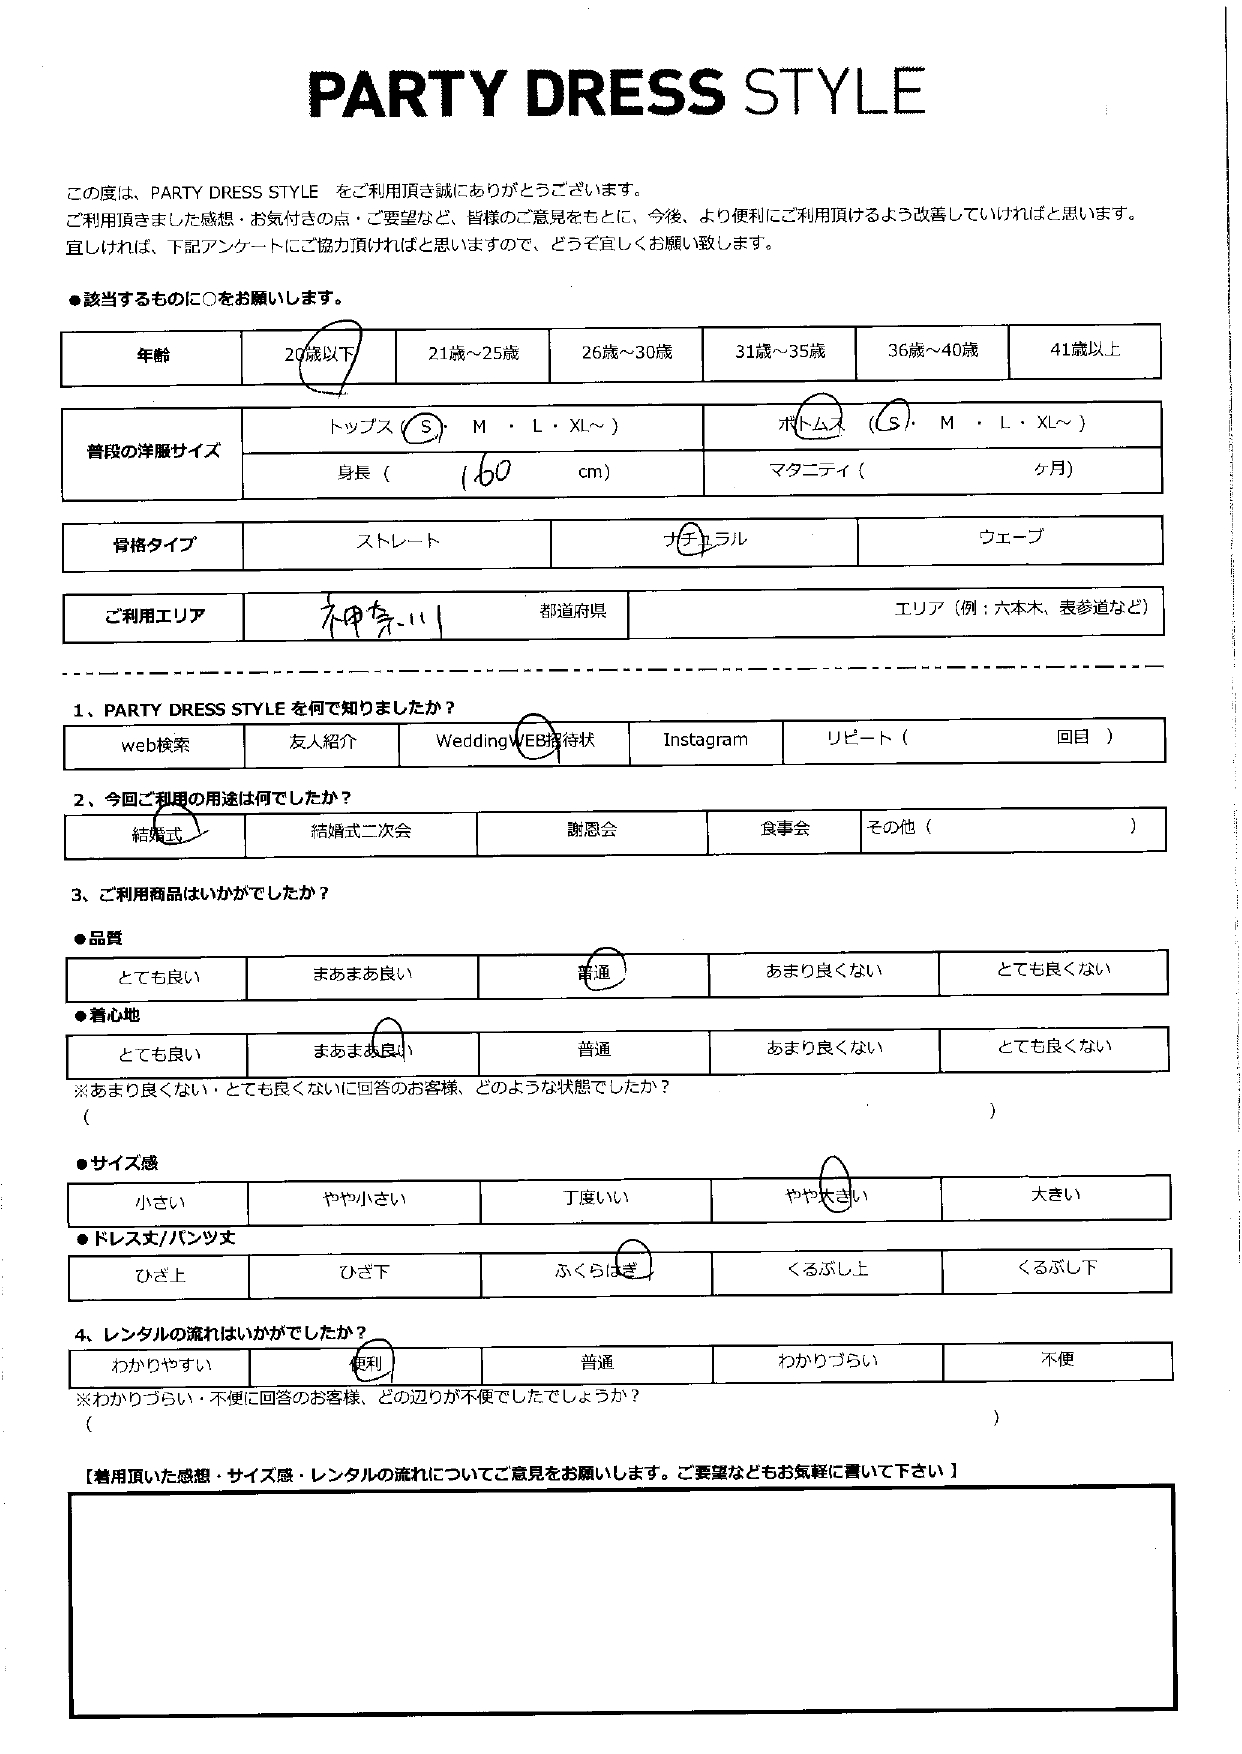 PARTY DRESS STYLE
この度は、PARTY DRESS STYLE をご利用頂き誠にありがとうございます。
ご利用頂きました感想・お気付きの点・ご要望など、皆様のご意見をもとに、今後、より便利にご利用頂けるよう改善していければと思います。
宜しければ、下記アンケートにご協力頂ければと思いますので、どうぞ宜しくお願い致します。
●該当するものに○をお願いします。
年齢 20歳以下 21歳～25歳 26歳～30歳 31歳～35歳 36歳～40歳 41歳以上
普段の洋服サイズ トップス ( S ・ M ・ L ・ XL～ ) ボトムス ( S ・ M ・ L ・ XL～ )
身長 ( 160 cm) マタニティ ( ケ月)
骨格タイプ ストレート ナチュラル ウェーブ
ご利用エリア 神奈川 都道府県 エリア（例：六本木、表参道など）
1、PARTY DRESS STYLE を何で知りましたか？
web検索 友人紹介 WeddingWEB招待状 Instagram リピート ( 回目 )
2、今回ご利用の用途は何でしたか？
結婚式 結婚式二次会 謝恩会 食事会 その他 ( )
3、ご利用商品はいかがでしたか？
●品質
とても良い まあまあ良い 普通 あまり良くない とても良くない
●着心地
とても良い まあまあ良い 普通 あまり良くない とても良くない
※あまり良くない・とても良くないに回答のお客様、どのような状態でしたか？
( )
●サイズ感
小さい やや小さい 丁度いい やや大きい 大きい
●ドレス丈/パンツ丈
ひざ上 ひざ下 ふくらはぎ くるぶし上 くるぶし下
4、レンタルの流れはいかがでしたか？
わかりやすい 便利 普通 わかりづらい 不便
※わかりづらい・不便に回答のお客様、どの辺りが不便でしたでしょうか？
( )
【着用頂いた感想・サイズ感・レンタルの流れについてご意見をお願いします。ご要望などもお気軽に書いて下さい 】